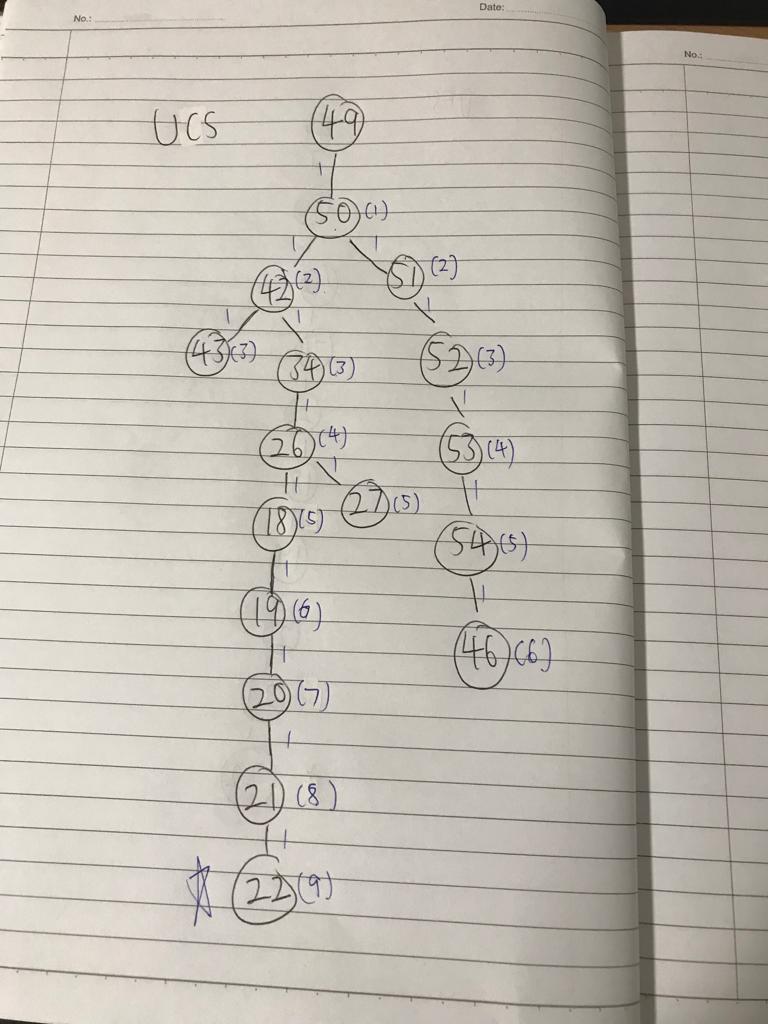 No.:
Date:
No.:
UCS 49
1
50 (1)
1 1
42 (2) 51 (2)
1 1 1
43 (3) 34 (3) 52 (3)
1 1
26 (4) 53 (4)
1 1 1
18 (5) 27 (5) 54 (5)
1 1
19 (6) 46 (6)
1
20 (7)
1
21 (8)
1
22 (9)